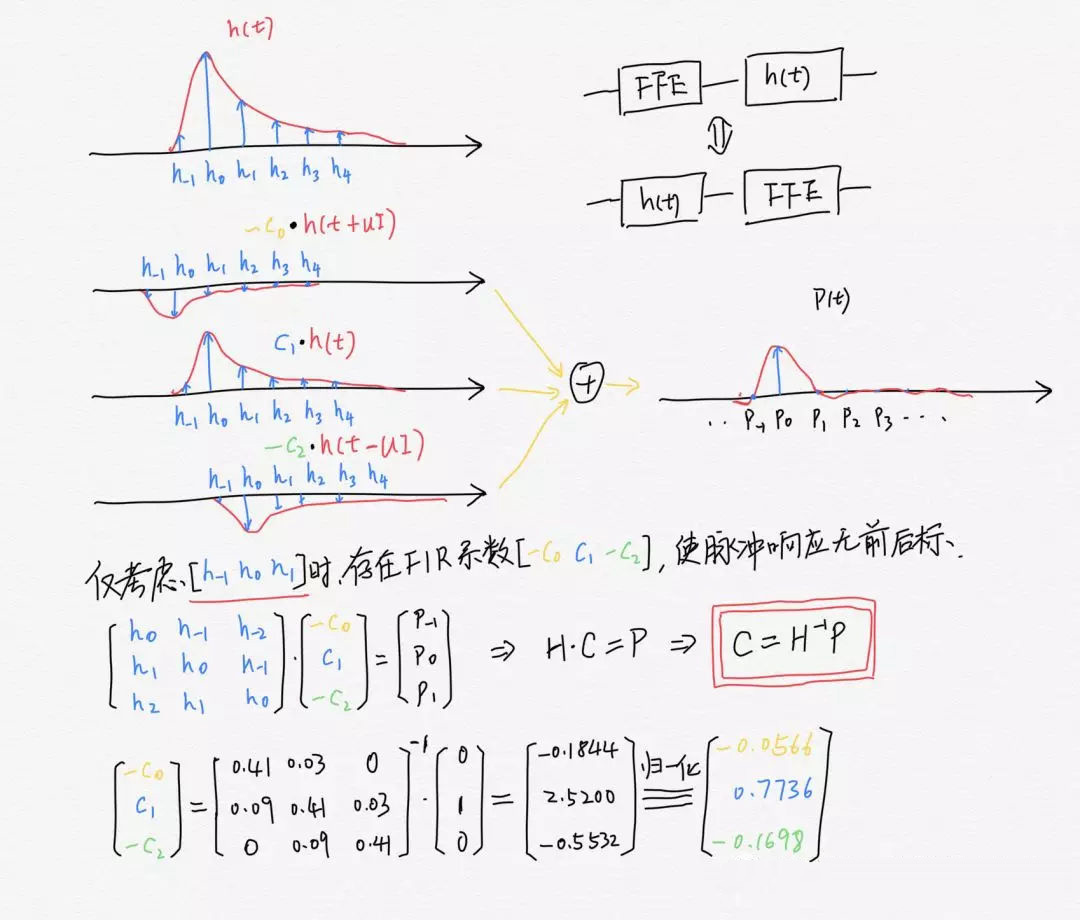 h(t)
h₋₁ h₀ h₁ h₂ h₃ h₄
FFE h(t)
⇕
h(t) FFE
-C₀·h(t+UI)
h₋₁ h₀ h₁ h₂ h₃ h₄
C₁·h(t)
h₋₁ h₀ h₁ h₂ h₃ h₄
-C₂·h(t-UI)
h₋₁ h₀ h₁ h₂ h₃ h₄
+
P(t)
·· P₋₁ P₀ P₁ P₂ P₃ ····
仅考虑[h₋₁ h₀ h₁]时,存在FIR系数[-C₀ C₁ -C₂],使脉冲响应无前后标.
[h₀ h₋₁ h₋₂; h₁ h₀ h₋₁; h₂ h₁ h₀]·[-C₀; C₁; -C₂]=[P₋₁; P₀; P₁] ⇒ H·C=P ⇒ C=H⁻¹P
[-C₀; C₁; -C₂]=[0.41 0.03 0; 0.09 0.41 0.03; 0 0.09 0.41]⁻¹·[0; 1; 0]=[-0.1844; 2.5200; -0.5532] 归一化 [-0.0566; 0.7736; -0.1698]